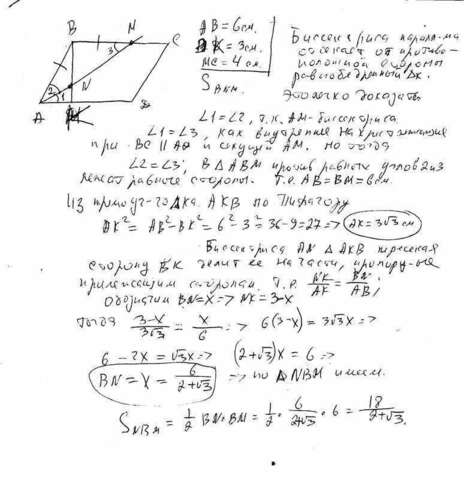 B M C
3
N
2
1
A K D
AB=6см.
BK=3см.
MC=4см.
S BNM.
Биссектриса паралл-ма
отсекает от противо-
положной стороны
равнобедренный Δк.
Это легко доказать
∠1=∠2, т.к. AM-биссектриса
∠1=∠3, как внутренние накрестлежащие
при BC || AD и секущей AM. Но тогда
∠2=∠3; В ΔABM против равных углов 2и3
лежат равные стороны. Т.е. AB=BM=6см.
Из прямоуг-го Δка AKB по Пифагору
AK²= AB²-BK²=6²-3²=36-9=27=> AK=3√3 см
Биссектриса AN Δ AKB пересекая
сторону BK делит ее на части, пропорц-ые
прилежащим сторонам. Т.е. NK/AK = BN/AB;
Обозначим BN=x=> NK=3-x
тогда (3-x)/(3√3) = x/6 => 6(3-x)=3√3x=>
6-2x=√3x=> (2+√3)x=6 =>
BN=x= 6/(2+√3) => по ΔNBM имеем.
S NBM = 1/2 BN·BM= 1/2 · 6/(2+√3) · 6 = 18/(2+√3).